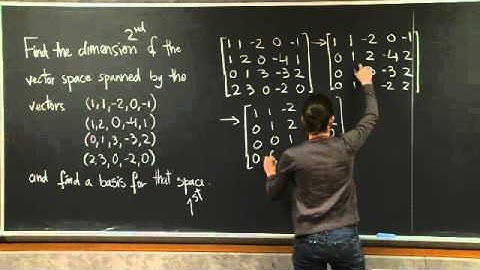 2nd
Find the dimension of the
vector space spanned by the
vectors (1,1,-2,0,-1)
(1,2,0,-4,1)
(0,1,3,-3,2)
(2,3,0,-2,0)
and find a basis for that space.
1st
1 1 -2 0 -1
1 2 0 -4 1
0 1 3 -3 2
2 3 0 -2 0
→
1 1 -2 0 -1
0 1 2 -4 2
0 -3 2
0 -2 2
→
1 1 -2
0 1 2
0 0 1
0